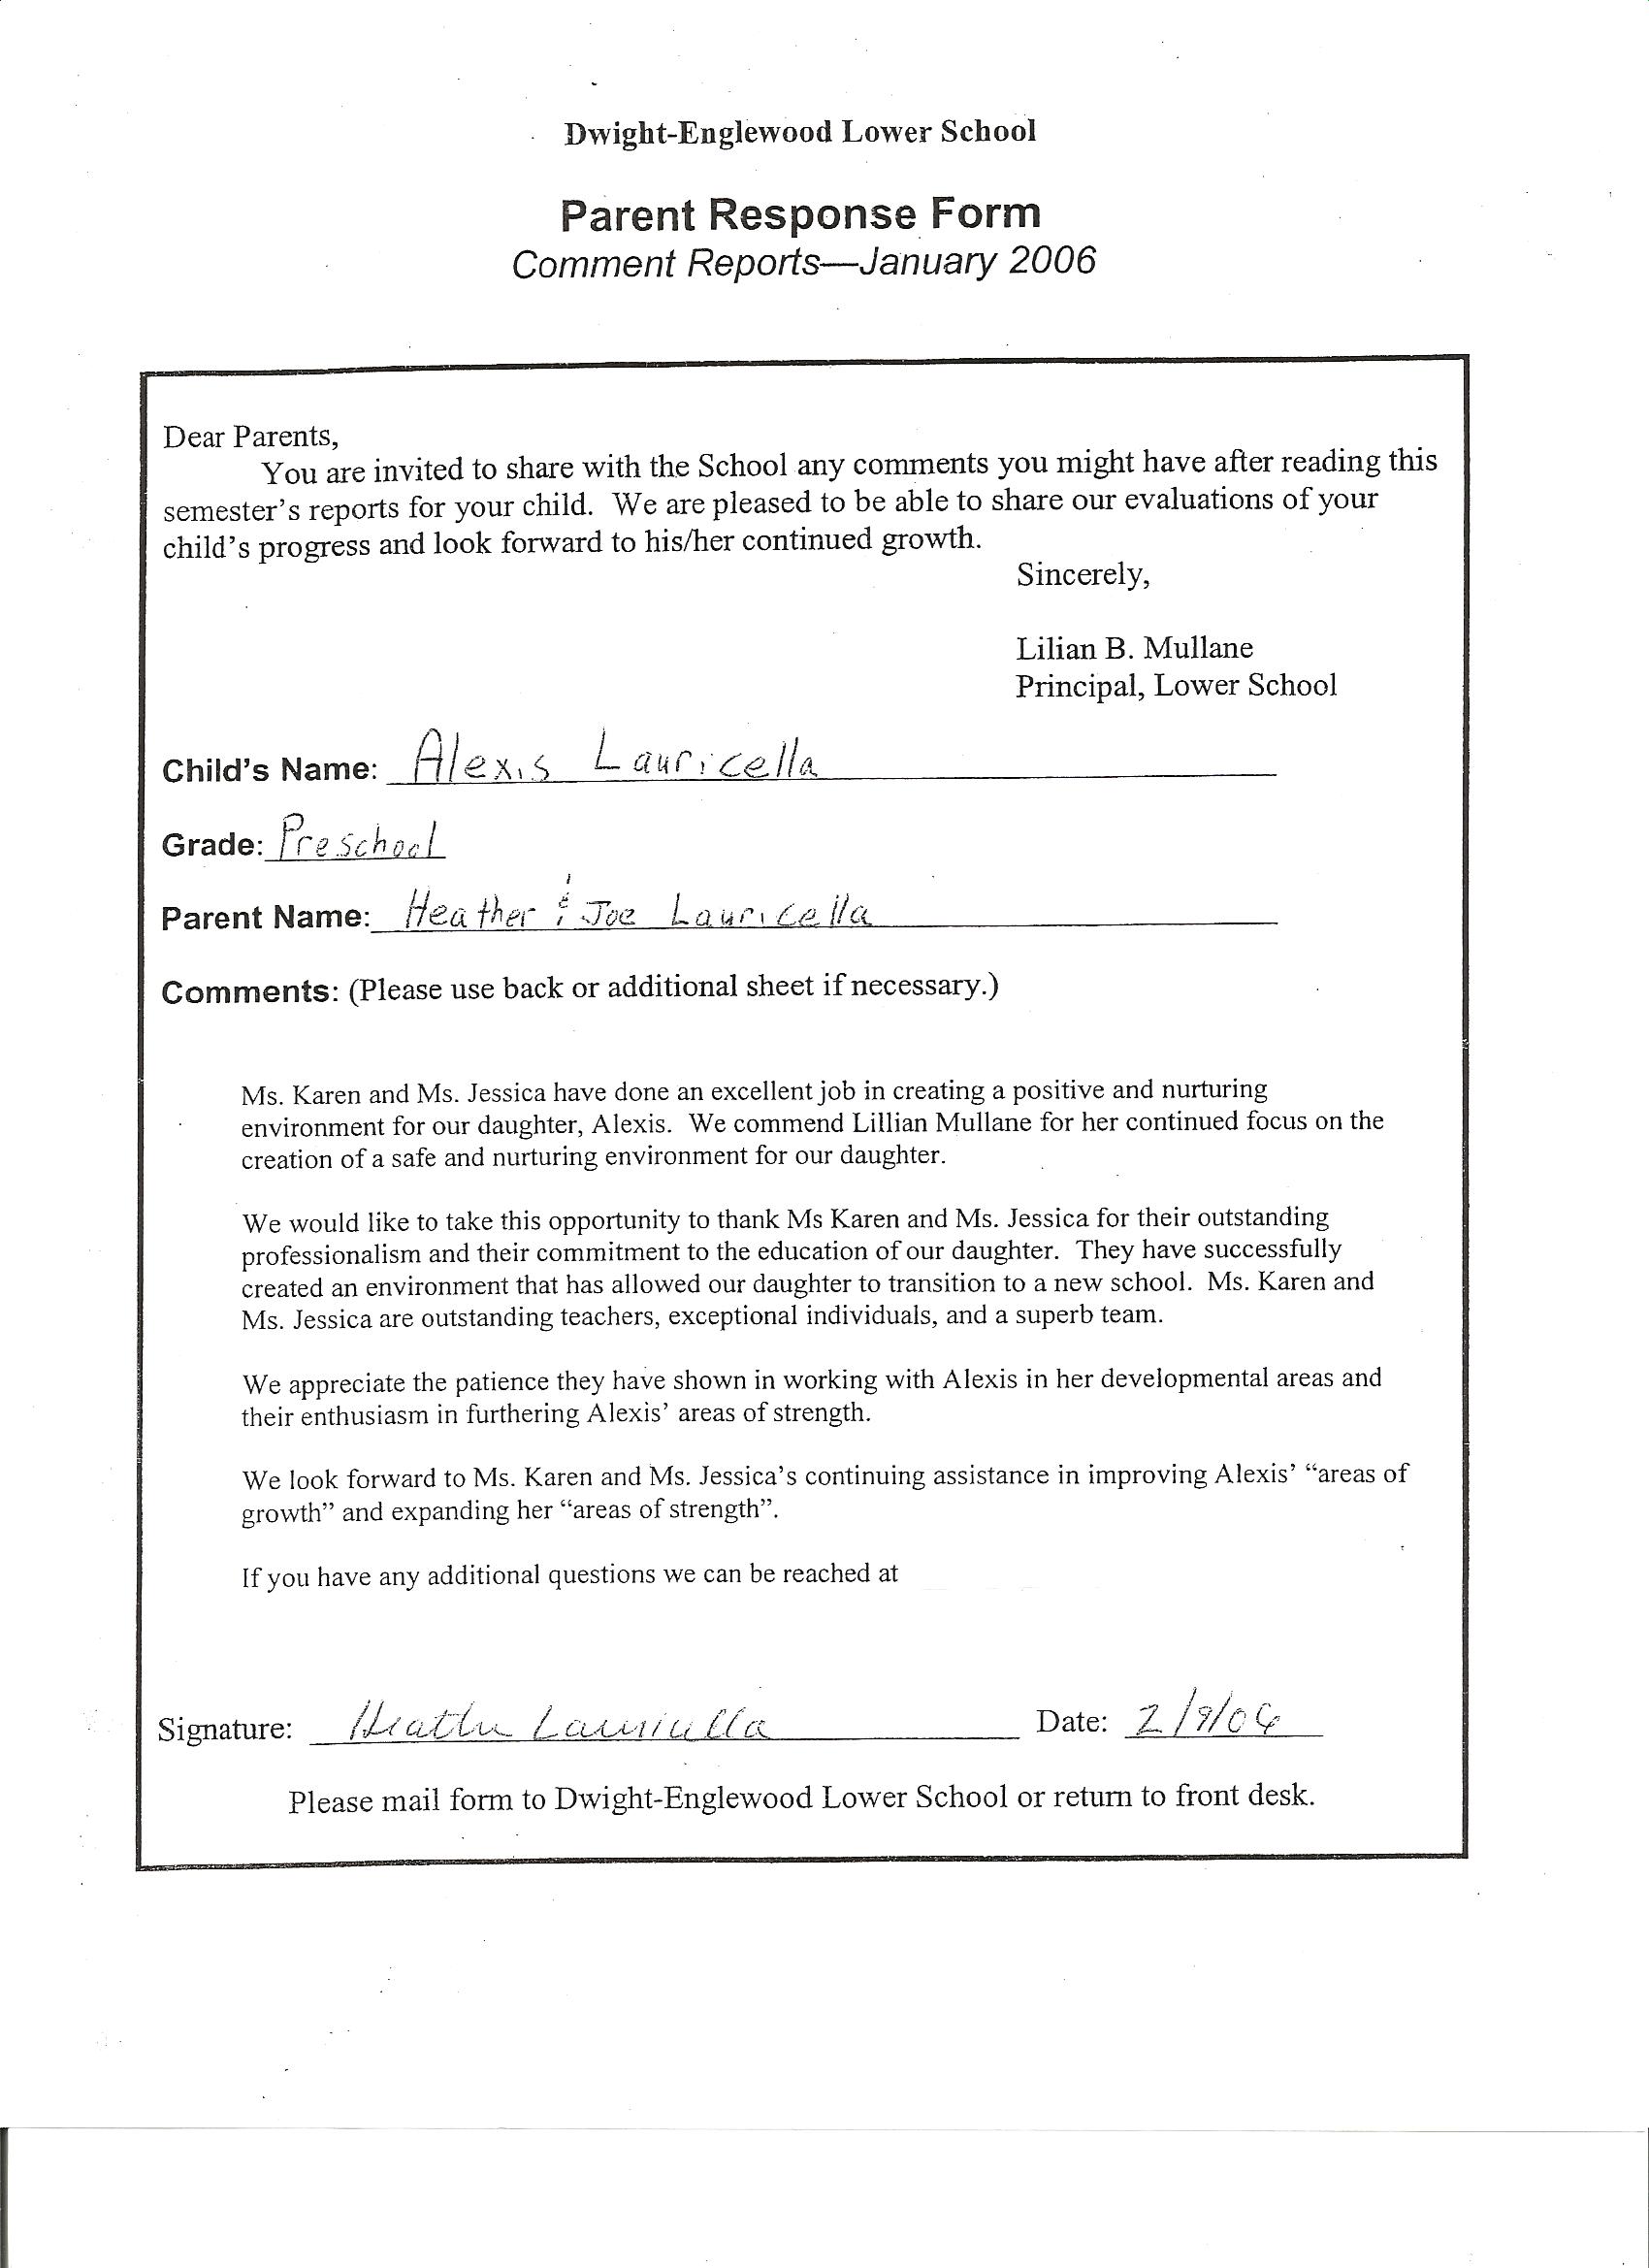 Dwight-Englewood Lower School
Parent Response Form
Comment Reports—January 2006
Dear Parents,
You are invited to share with the School any comments you might have after reading this
semester's reports for your child. We are pleased to be able to share our evaluations of your
child's progress and look forward to his/her continued growth.
Sincerely,
Lilian B. Mullane
Principal, Lower School
Child's Name: Alexis Lauricella
Grade: Preschool
Parent Name: Heather & Joe Lauricella
Comments: (Please use back or additional sheet if necessary.)
Ms. Karen and Ms. Jessica have done an excellent job in creating a positive and nurturing
environment for our daughter, Alexis. We commend Lillian Mullane for her continued focus on the
creation of a safe and nurturing environment for our daughter.
We would like to take this opportunity to thank Ms Karen and Ms. Jessica for their outstanding
professionalism and their commitment to the education of our daughter. They have successfully
created an environment that has allowed our daughter to transition to a new school. Ms. Karen and
Ms. Jessica are outstanding teachers, exceptional individuals, and a superb team.
We appreciate the patience they have shown in working with Alexis in her developmental areas and
their enthusiasm in furthering Alexis' areas of strength.
We look forward to Ms. Karen and Ms. Jessica's continuing assistance in improving Alexis' “areas of
growth” and expanding her “areas of strength”.
If you have any additional questions we can be reached at
Signature: Heather Lauricella Date: 2/9/06
Please mail form to Dwight-Englewood Lower School or return to front desk.